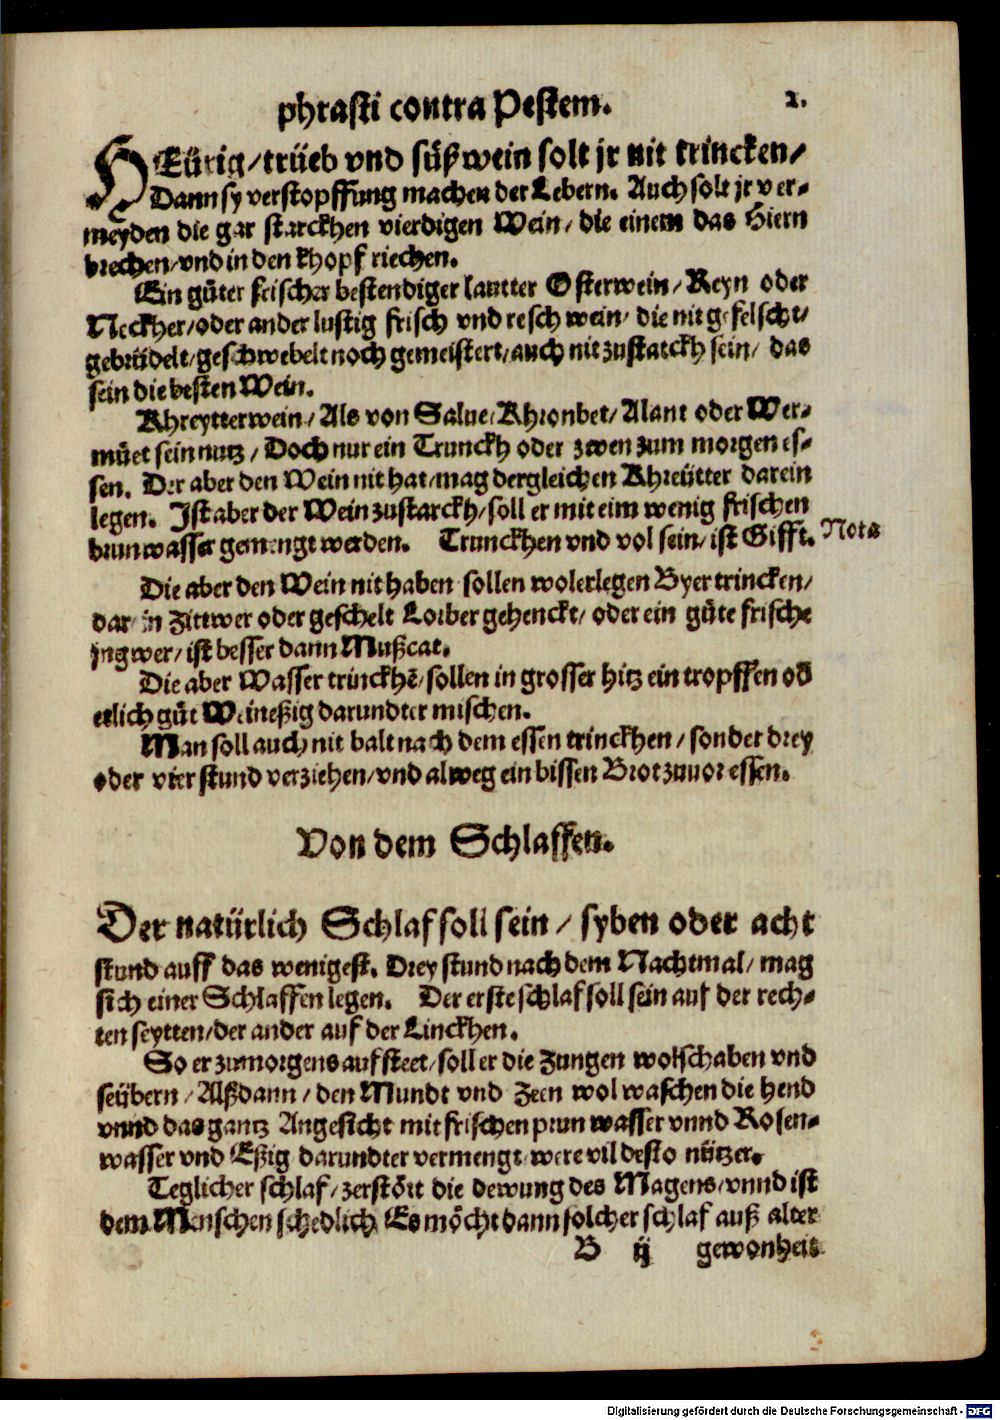 phrasti contra Pestem. 2.
HEürig/trüeb vnd süß wein solt jr nit trincken/
Dann sy verstopffung machen der Lebern. Auch solt jr ver-
meyden die gar starckhen vierdigen Wein/ die einem das Hiern
brechen/vnd in den khopf riechen.
Ein gůter frischer bestendiger lautter Osterwein/ Reyn oder
Neckher/oder ander lustig frisch vnd resch wein/ die nit gefelscht/
gebrüdelt/geschwebelt noch gemeistert/auch nit zustarckh sein/ das
sein die besten Wein.
Khreytterwein/ Als von Salue/ Khronbet/ Alant oder Wer-
můet sein nutz/ Doch nur ein Trunckh oder zwen zum morgen es-
sen. Der aber den Wein nit hat/mag dergleichen Khreütter darein
legen. Ist aber der Wein zustarckh/soll er mit eim wenig frischen
brunwasser gemengt werden. Trunckhen vnd vol sein/ ist Gifft. Nota
Die aber den Wein nit haben sollen wolerlegen Byer trincken/
dar in Zittwer oder geschelt Lorber gehenckt/ oder ein gůte frische
Jngwer/ ist besser dann Mußcat.
Die aber Wasser trinckhē/sollen in grosser hitz ein tropffen od̄
etlich gůt Weineßig darundter mischen.
Man soll auch nit balt nach dem essen trinckhen/ sonder drey
oder vier stund verziehen/vnd alweg ein bissen Brot zuuor essen.
Von dem Schlaffen.
Der natürlich Schlaf soll sein/ syben oder acht
stund auff das wenigest. Drey stund nach dem Nachtmal/ mag
sich einer Schlaffen legen. Der erste schlaf soll sein auf der rech-
ten seytten/der ander auf der Linckhen.
So er zumorgens aufsteet/soll er die Zungen wolschaben vnd
seübern/ Alßdann/ den Mundt vnd Zeen wol waschen die hend
vnnd das gantz Angesicht mit frischen prun wasser vnnd Rosen-
wasser vnd Eßig darundter vermengt/ were vil desto nützer.
Teglicher schlaf/zerstört die dewung des Magens/vnnd ist
dem Menschen schedlich Es möcht dann solcher schlaf auß alter
B ij gewonheit
Digitalisierung gefördert durch die Deutsche Forschungsgemeinschaft - DFG